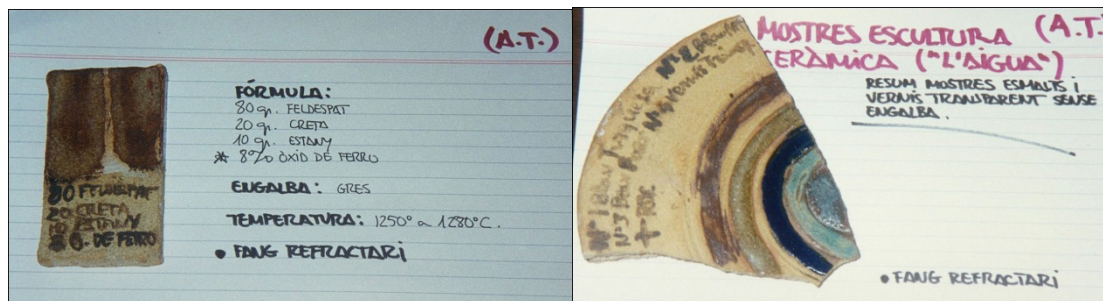 (A.T.)
FÓRMULA:
80 gr. FELDESPAT
20 gr. CRETA
10 gr. ESTANY
* 8% ÒXID DE FERRO
ENGALBA: GRES
TEMPERATURA: 1250° a 1280°C.
• FANG REFRACTARI
80 FELDESPAT
20 CRETA
10 ESTANY
8 O. DE FERRO
MOSTRES ESCULTURA (A.T.)
CERÀMICA ("L'AIGUA")
RESUM MOSTRES ESMALTS I
VERNÍS TRANSPARENT SENSE
ENGALBA.
Nº 1 Blau Turquesa
Nº 2 Blau
Nº 3 Blau
Nº 5 Vernís
• FANG REFRACTARI